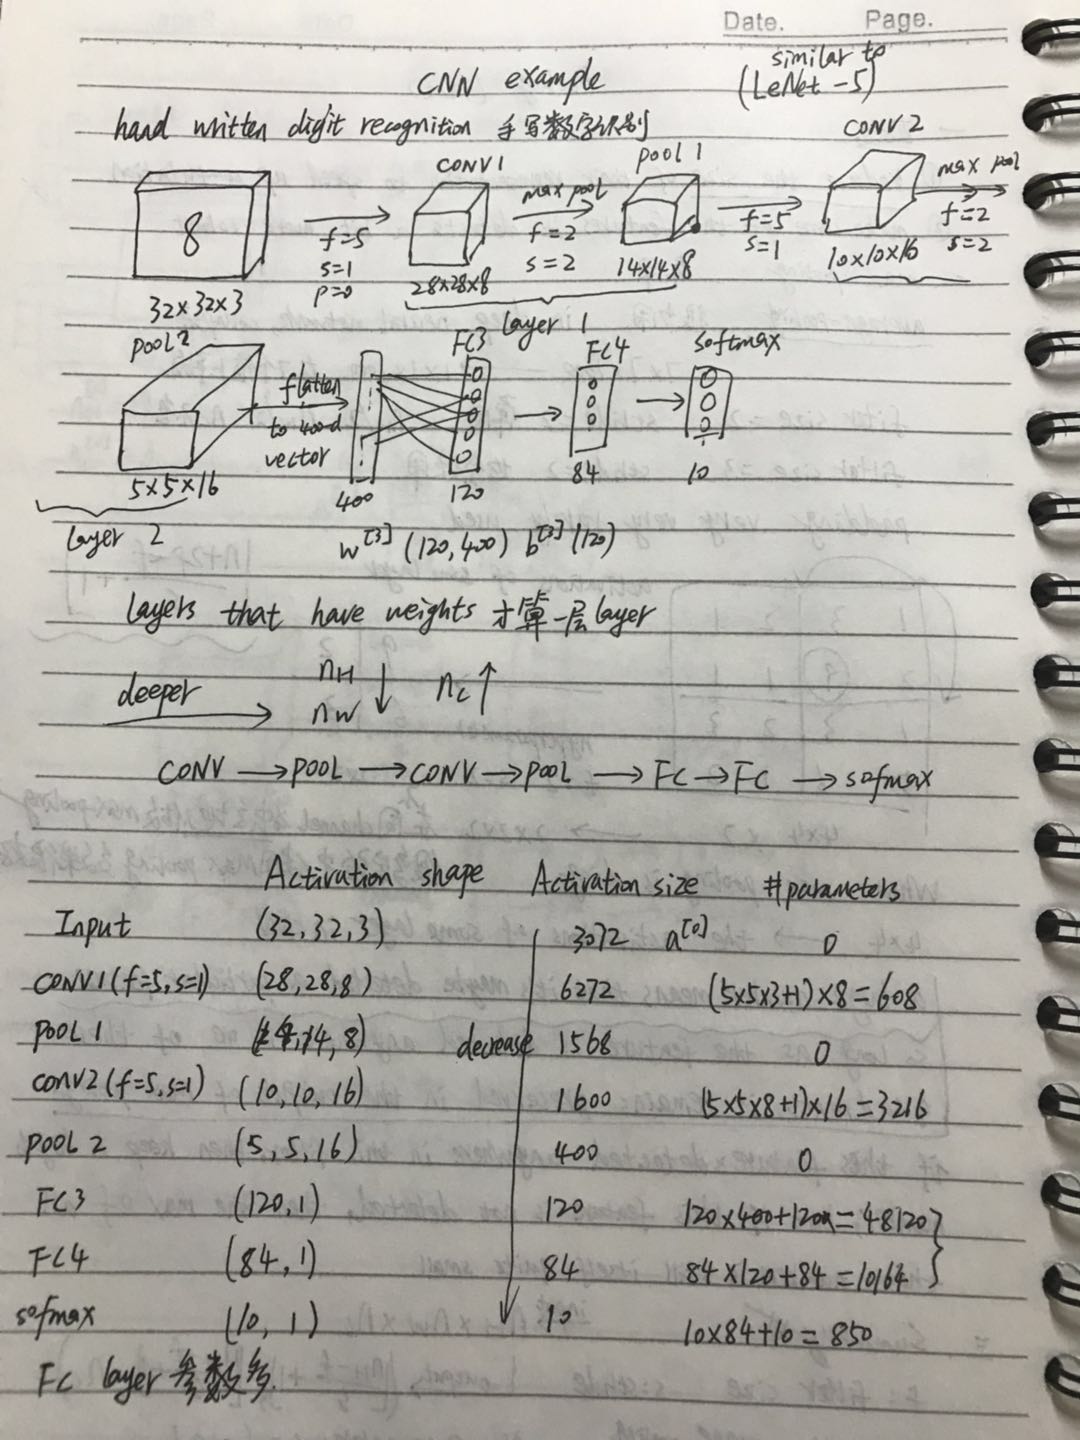 Date. Page.
CNN example
similar to
(LeNet-5)
hand written digit recognition 手写数字识别
8
32×32×3
f=5
s=1
p=0
CONV1
28×28×8
max pool
f=2
s=2
POOL 1
14×14×8
layer 1
f=5
s=1
CONV 2
10×10×16
max pool
f=2
s=2
POOL 2
5×5×16
layer 2
flatten
to 400-d
vector
400
FC3
120
FC4
84
softmax
10
w[3] (120,400) b[3] (120)
layers that have weights 才算一层layer
deeper
nH
nW
↓
nc ↑
CONV → POOL → CONV → POOL → FC → FC → sofmax
Activation shape Activation size #parameters
Input (32,32,3) 3072 a[0] 0
CONV1 (f=5,s=1) (28,28,8) 6272 (5×5×3+1)×8=608
POOL 1 (14,14,8) decrease 1568 0
CONV2 (f=5,s=1) (10,10,16) 1600 (5×5×8+1)×16=3216
POOL 2 (5,5,16) 400 0
FC3 (120,1) 120 120×400+120=48120
FC4 (84,1) 84 84×120+84=10164
sofmax (10,1) 10 10×84+10=850
FC layer 参数多.